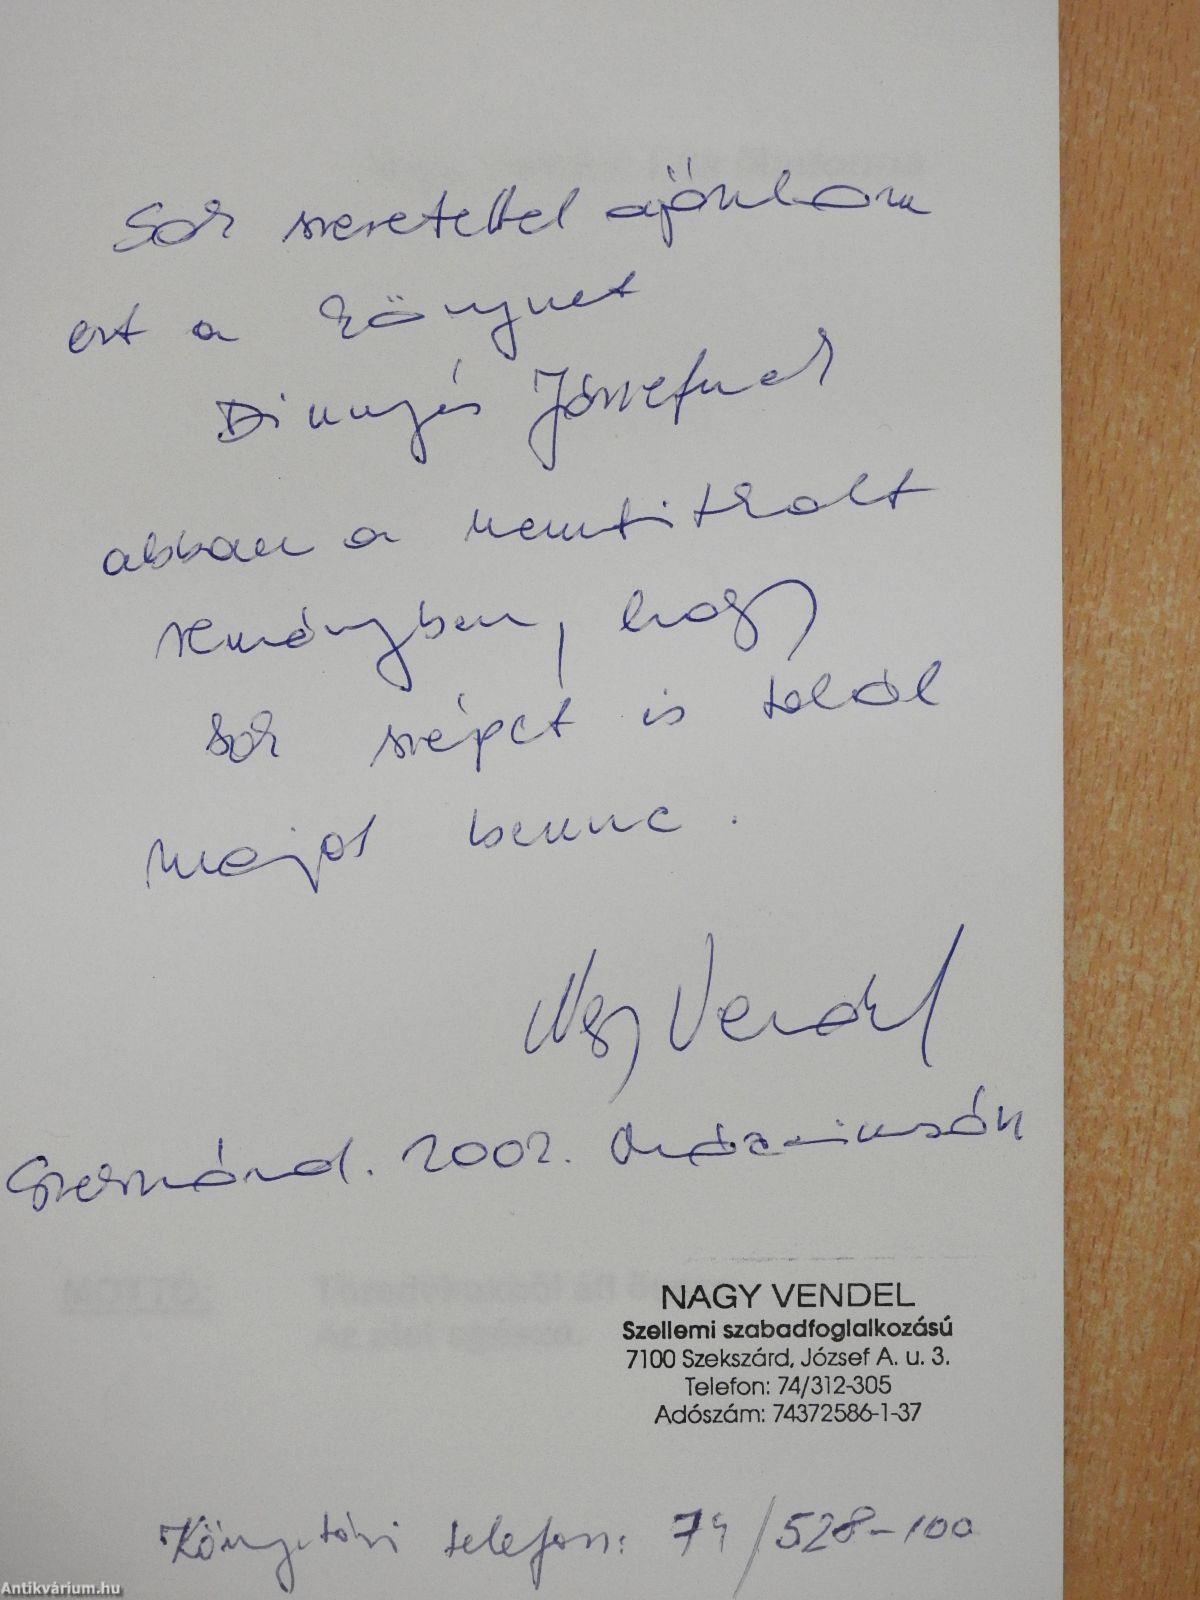 Sok szeretettel ajánlom
ezt a könyvet
Dinnyés Józsefnek
abban a nemtitkolt
reményben, hogy
sok szépet is talál
majd benne.
Nagy Vendel
Szekszárd. 2002.
MOTTÓ:
NAGY VENDEL
Szellemi szabadfoglalkozású
7100 Szekszárd, József A. u. 3.
Telefon: 74/312-305
Adószám: 74372586-1-37
Könyvtári telefon: 74/528-100
Antikvárium.hu